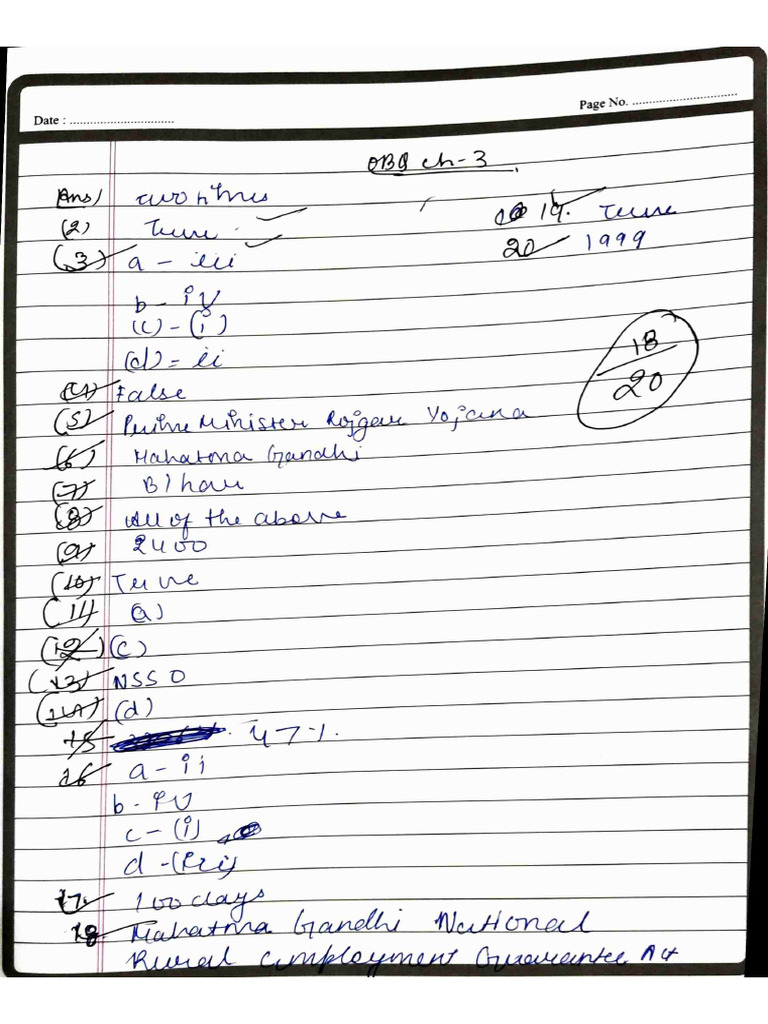 Date : ..............................
Page No. ..............................
OBQ ch-3
Ans1 two times
(2) True
19. True
20 1999
(3) a - iii
b - iv
(c) - (i)
(d) = ii
18/20
(4) False
(5) Prime Minister Rojgar Yojana
(6) Mahatma Gandhi
(7) Bihar
(8) All of the above
(9) 2400
(10) True
(11) (a)
(12) (c)
(13) NSSO
(14) (d)
15 47%.
16 a - ii
b - iv
c - (i)
d - (iii)
17. 100 days
18 Mahatma Gandhi National
Rural Employment Guarantee Act